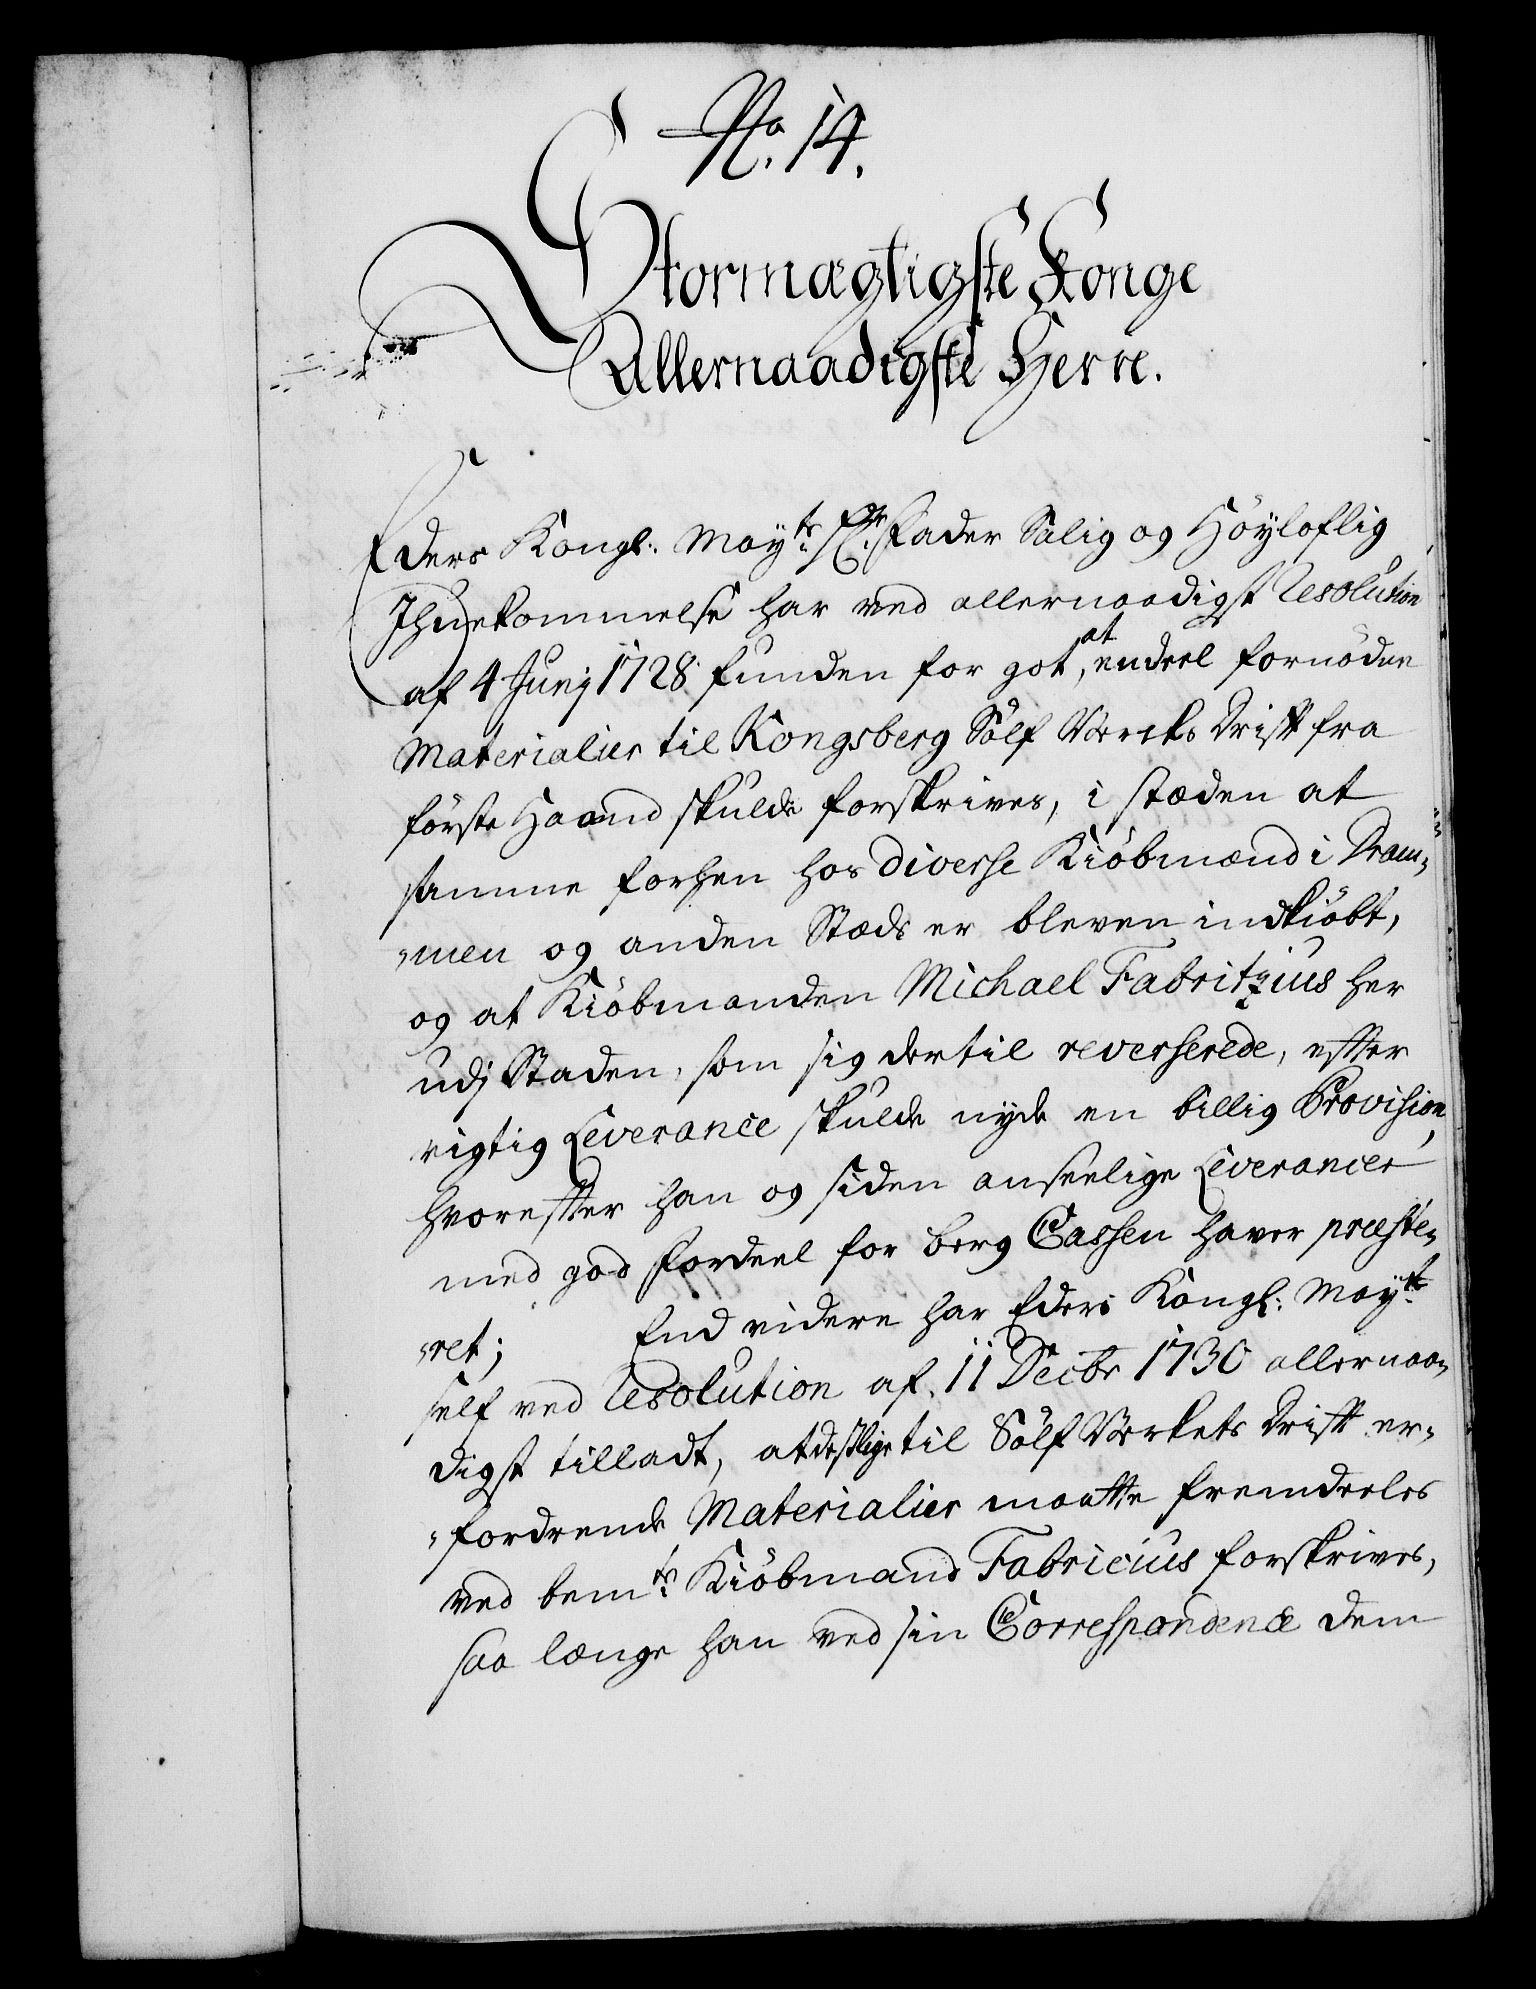 No. 14.
Stormægtigste Konge
Allernaadigste Herre.
Eders Kongl: Mayts Hr Fader Salig og Höyloflig
Ihuekommelse har ved allernaadigst Resolution
af 4 Junj 1728 funden for got, at endeel fornödne
Materialier til Kongsberg Sölf Wercks Drift fra
förste Haand skulde forskrives, i stæden at
samme forhen hos diverse Kiöbmænd i Dram-
-men og anden Stæds er bleven indkiöbt,
og at Kiöbmanden Michael Fabritzius her
udj Staden, som sig dertil reverserede, efter
rigtig Leverance skulde nyde en billig Provision,
hvorefter han og siden anseelige Leverancer
med god Fordeel for berg Cassen haver præste-
-ret; End videre har Eders Kongl: Mayt
self ved Resolution af 11 Decbr 1730 allernaa-
digst tilladt, at deslige til Sölf Werkets Drift er-
-fordrende Materialier maatte fremdeeles
ved bemte Kiöbmand Fabricius forskrives,
saa længe han ved sin Correspondence dem